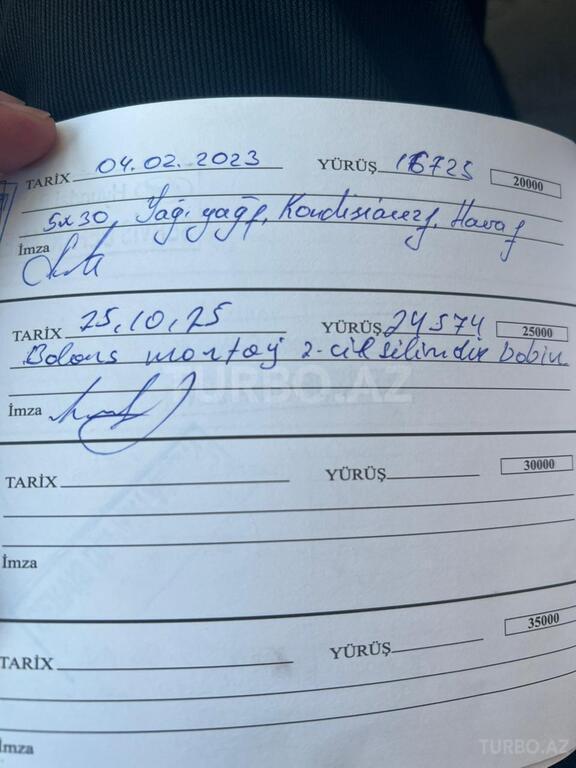 TARİX 04.02.2023 YÜRÜŞ 16725 20000
5x30, Yağı yağf, Kondisianerf, Hava f
İmza
TARİX 25.10.25 YÜRÜŞ 24574 25000
Balans montaj 2-cik silindir bobin
İmza
TURBO.AZ
TARİX YÜRÜŞ 30000
İmza
TARİX YÜRÜŞ 35000
İmza
TURBO.AZ